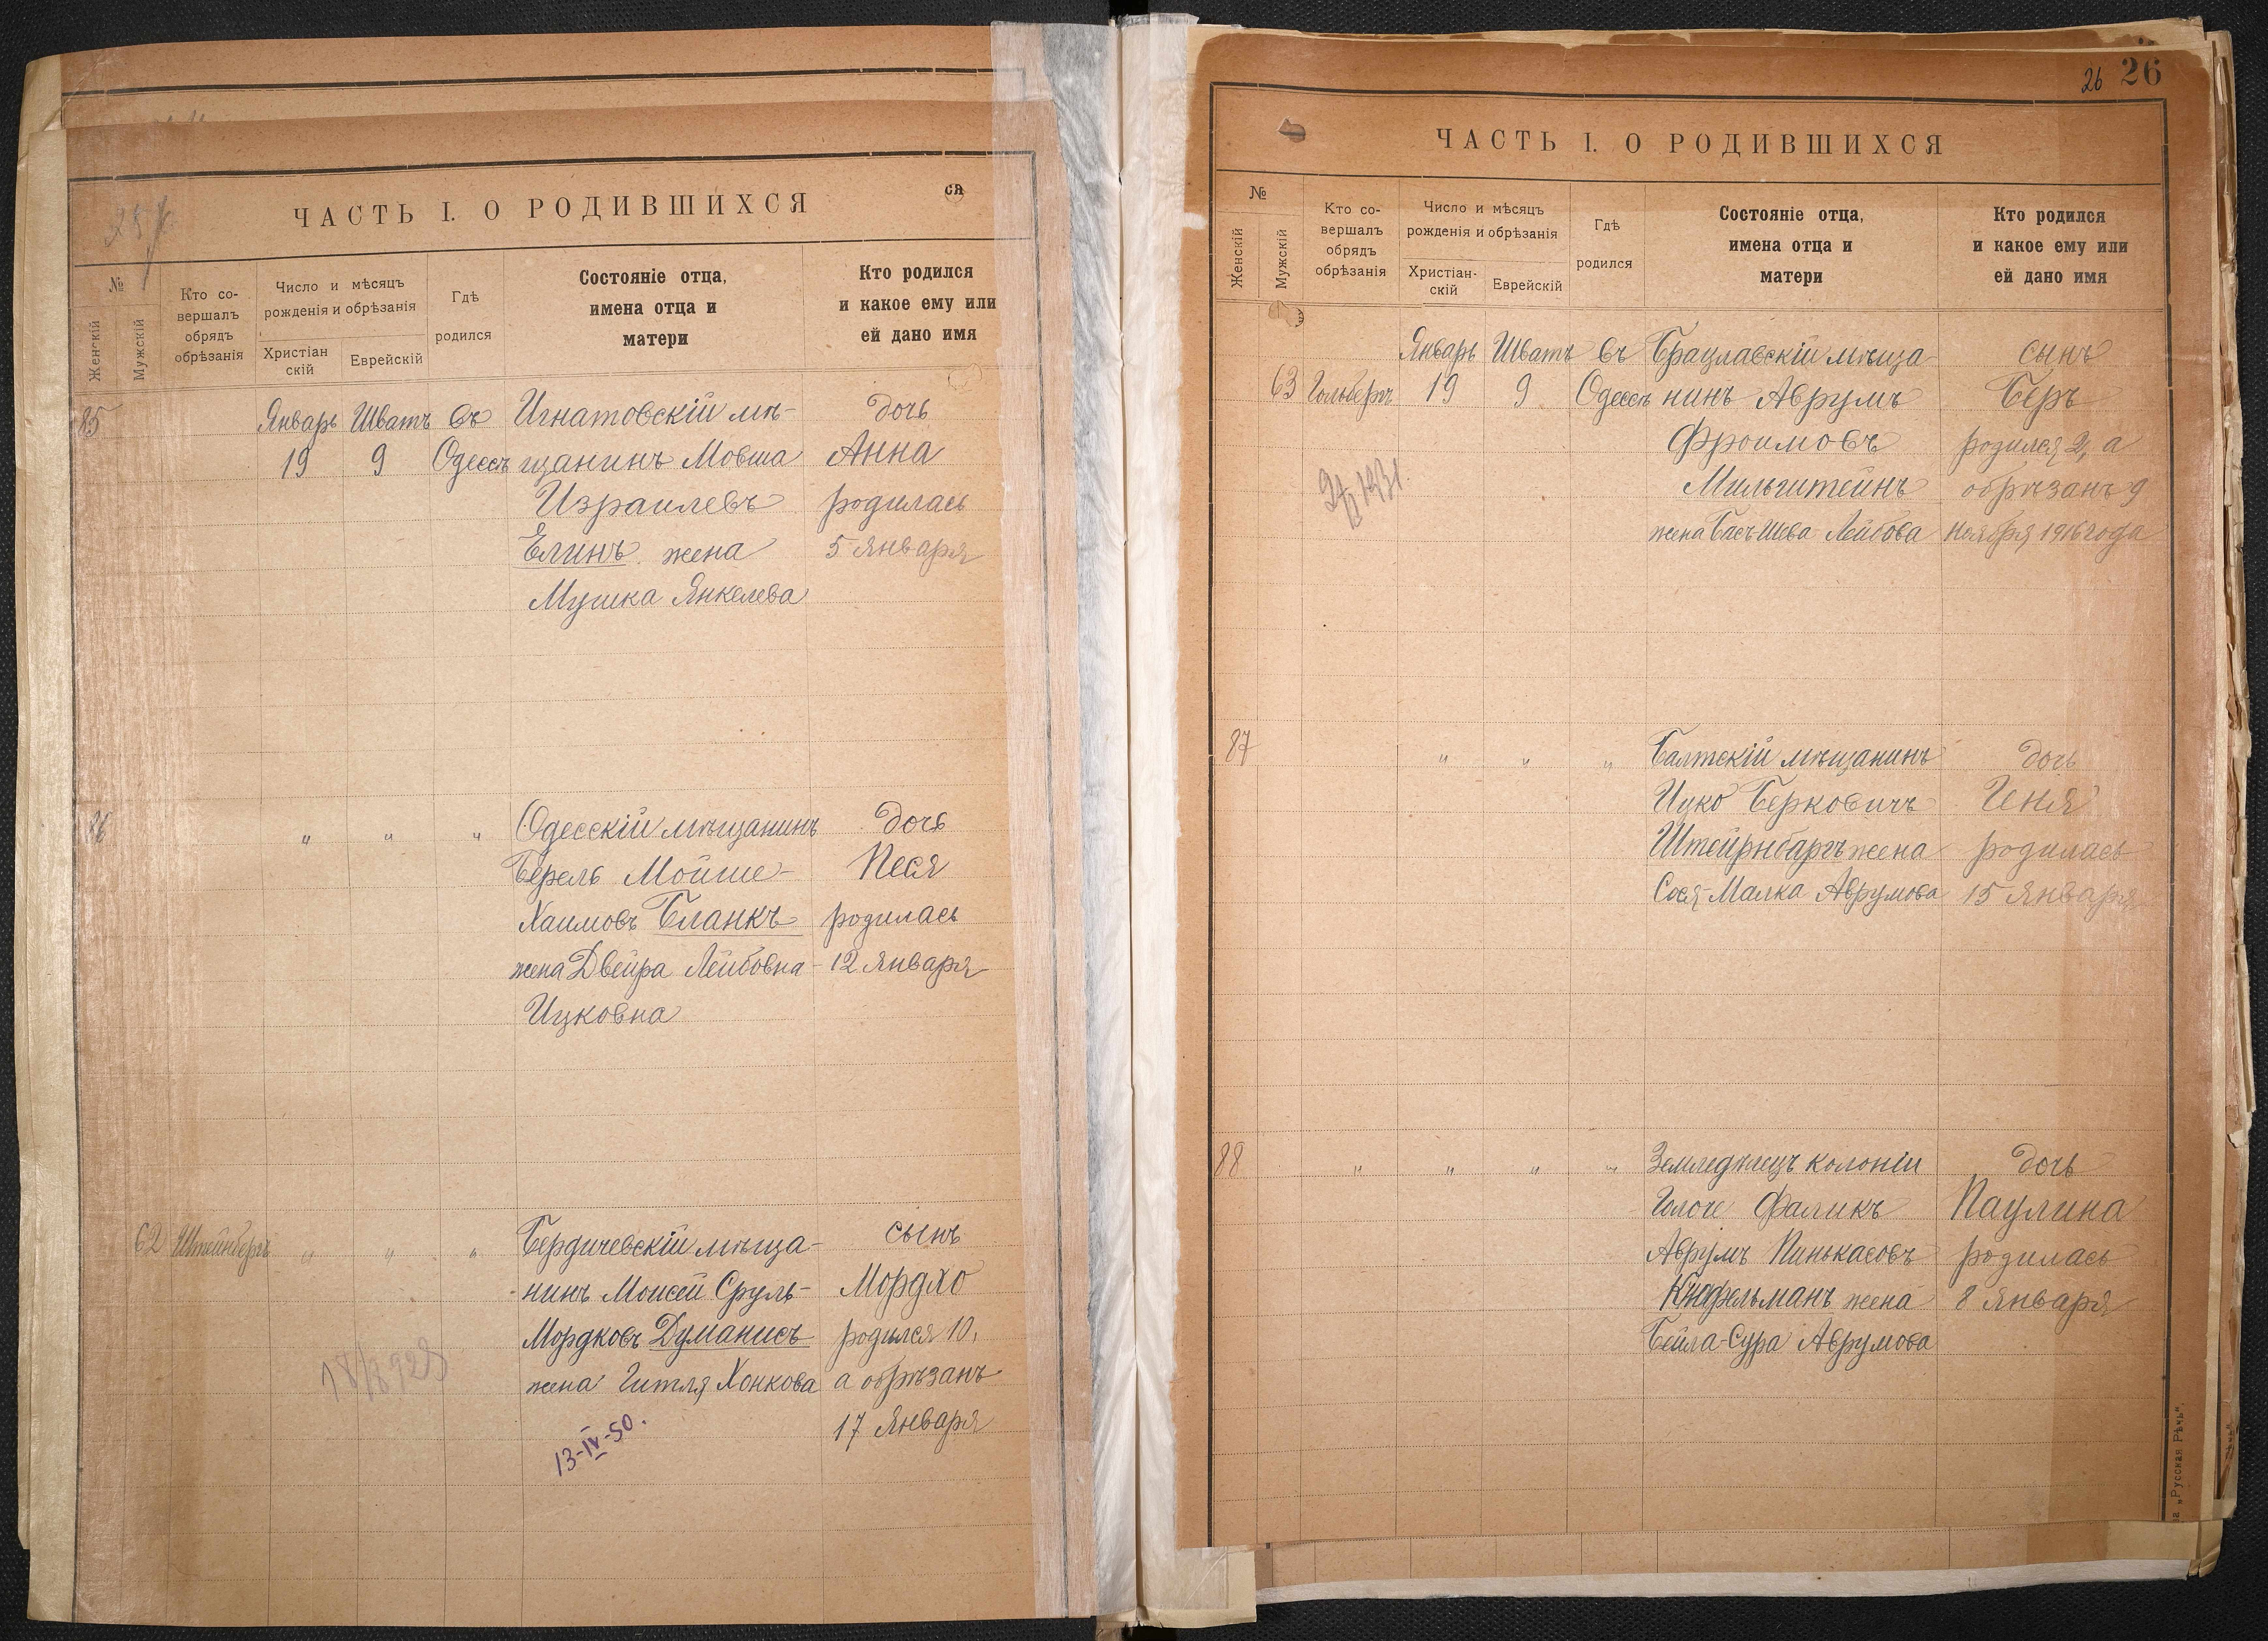 25
ЧАСТЬ I. О РОДИВШИХСЯ
ся
№
Женскій
Мужскій
Кто со-
вершалъ
обрядъ
обрѣзанія
Число и мѣсяцъ
рожденія и обрѣзанія
Христіан
скій
Еврейскій
Гдѣ
родился
Состояніе отца,
имена отца и
матери
Кто родился
и какое ему или
ей дано имя
85
Январь Шватъ въ Игнатовскій мѣ- дочь
19 9 Одессѣ щанинъ Мовша Анна
Израилевъ родилась
Елинъ жена 5 Января
Мушка Янкелева
86 " " " Одесскій мѣщанинъ дочь
Берель Мойше- Песя
Хаимовъ Бланкъ родилась
жена Двейра Лейбовна- 12 Января
Ицковна
62 Штейнбергъ " " " Бердичевскій мѣща- сынъ
нинъ Моисей Сруль- Мордхо
Мордковъ Думанисъ родился 10,
жена Гитля Хонкова а обрѣзанъ
17 Января
13-IV-50.
26 26
ЧАСТЬ I. О РОДИВШИХСЯ
№
Женскій
Мужскій
Кто со-
вершалъ
обрядъ
обрѣзанія
Число и мѣсяцъ
рожденія и обрѣзанія
Христіан-
скій
Еврейскій
Гдѣ
родился
Состояніе отца,
имена отца и
матери
Кто родился
и какое ему или
ей дано имя
Январь Шватъ въ Брацлавскій мѣща сынъ
63 19 9 Одессѣ нинъ Аврумъ Беръ
Фроимовъ родился 2, а
Мильштейнъ обрѣзанъ 9
жена Басъ Шева Лейбова ноября 1916 года
87 " " " Балтскій мѣщанинъ дочь
Ицко Берковичъ Иня
Штейрнбаргъ жена родилась
Сося-Малка Аврумова 15 Января
88 " " " " Земледѣлецъ колоніи дочь
Фаликъ Паулина
Аврумъ Пинькасовъ родилась
жена 8 Января
Бейла-Сура Аврумова
„Русская Рѣчь“.